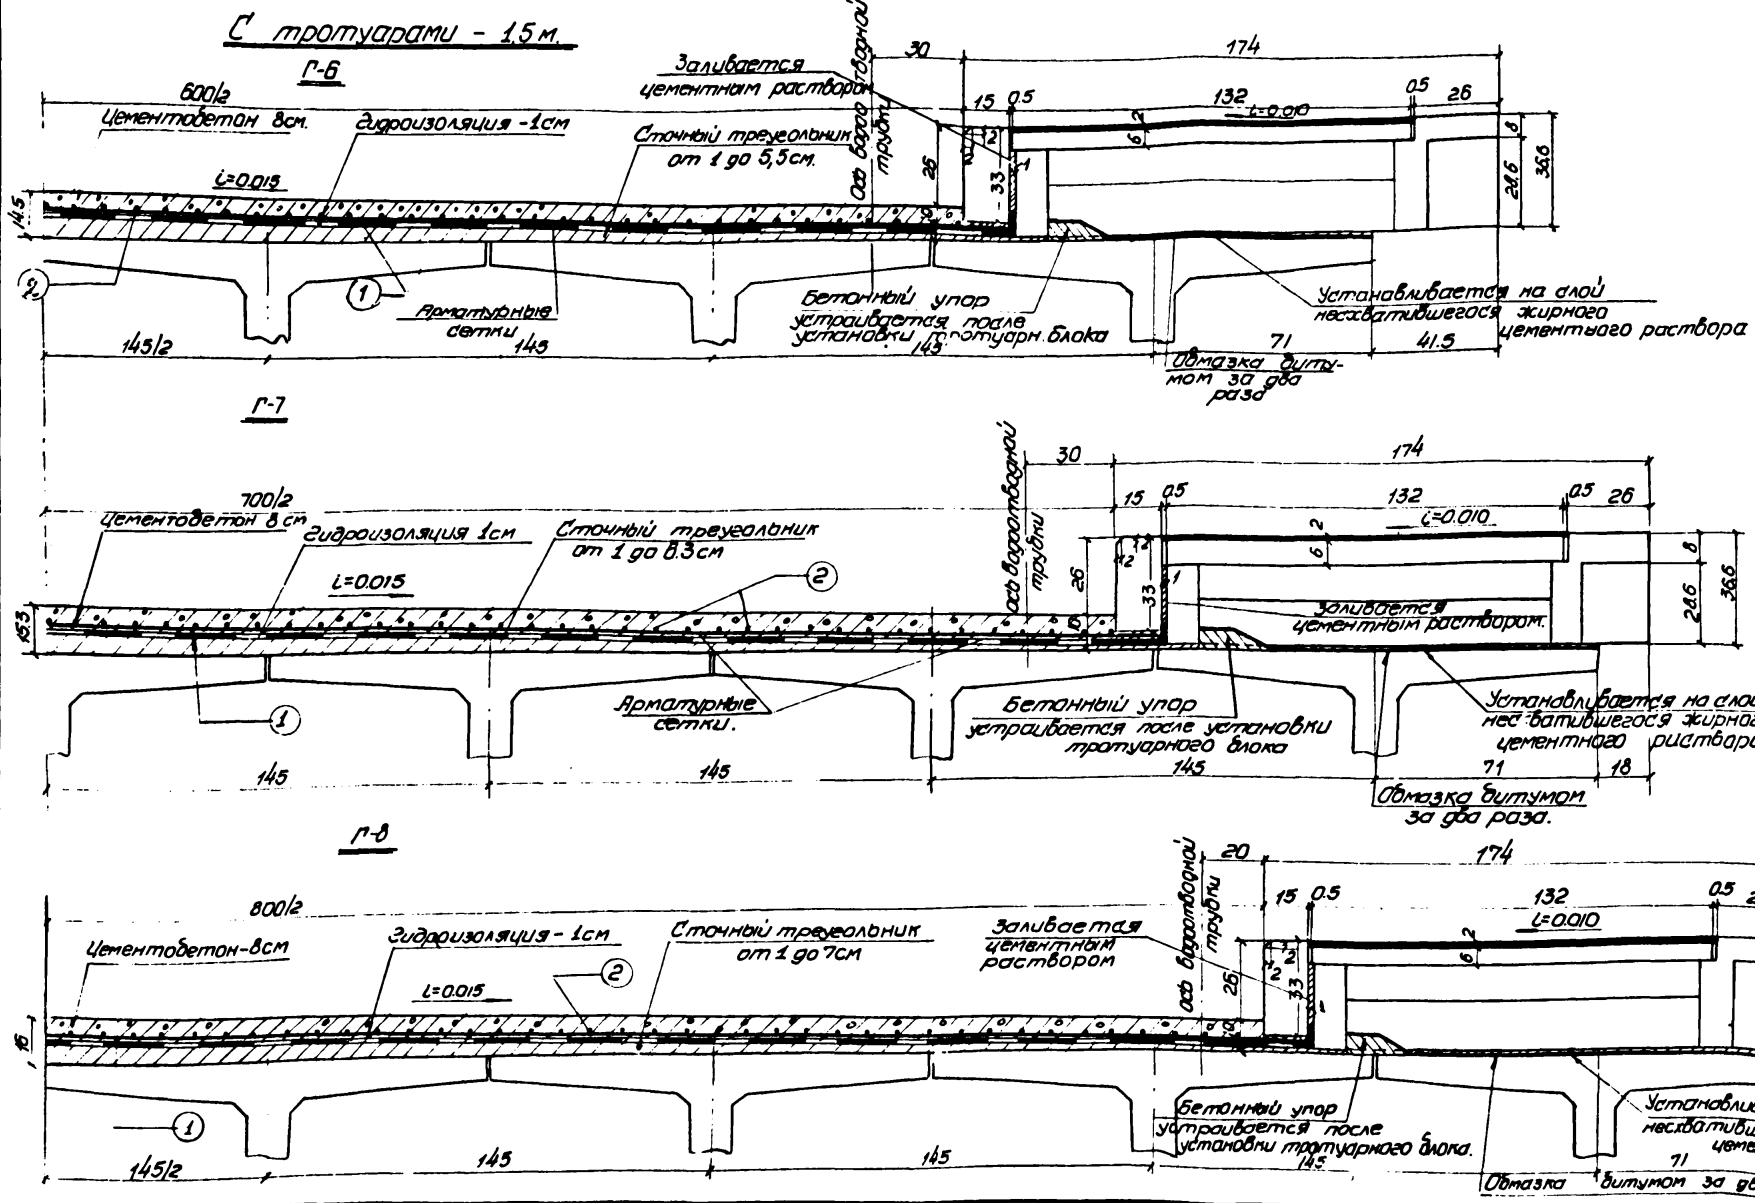 С тротуарами - 1,5 м.
Г-6
600/2
Цементобетон 8см.
Гидроизоляция -1см
Заливается
цементным раствором
Сточный треугольник
от 1 до 5,5см.
Ось водоотводной
трубки
30
174
15
0.5
132
0.5
26
i=0.010
2
6
8
28.6
36.6
26
33
2
2
1
i=0.015
14.5
2
1
Арматурные
сетки
Бетонный упор
устраивается после
установки тротуарн. блока
Устанавливается на слой
несхватившегося жирного
цементного раствора
145/2
145
145
71
41.5
Обмазка биту-
мом за два
раза
Г-7
700/2
Цементобетон 8 см
Гидроизоляция 1см
Сточный треугольник
от 1 до 8.3см
Ось водоотводной
трубки
30
174
15
0.5
132
0.5
26
i=0.010
2
6
8
28.6
36.6
26
33
2
2
1
i=0.015
2
15.3
Заливается
цементным раствором.
1
Арматурные
сетки.
Бетонный упор
устраивается после установки
тротуарного блока
Устанавливается на слой
несхватившегося жирног
цементного раствора
145
145
145
71
18
Обмазка битумом
за два раза.
Г-8
800/2
Цементобетон-8см
Гидроизоляция - 1см
Сточный треугольник
от 1 до 7см
Заливается
цементным
раствором
Ось водоотводной
трубки
20
174
15
0.5
132
0.5
2
i=0.010
2
6
26
33
2
2
1
i=0.015
2
16
1
Бетонный упор
устраивается после
установки тротуарного блока.
Устанавли
несхвативш
цеме
145/2
145
145
145
71
Обмазка битумом за дв